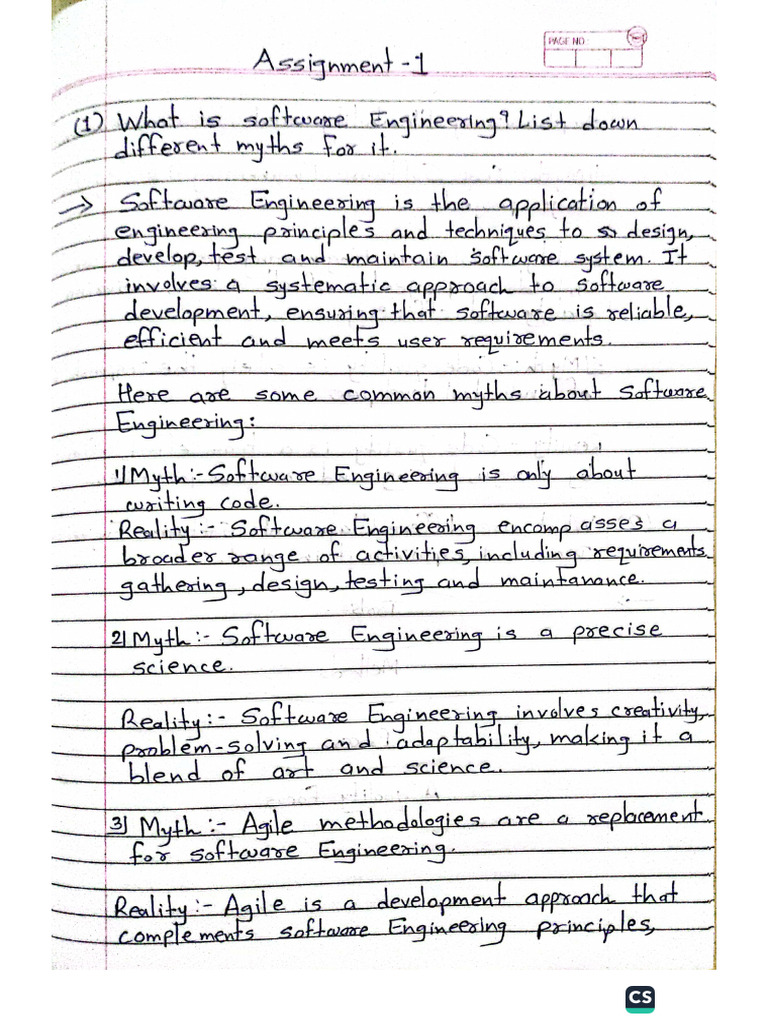 PAGE NO
Assignment - 1
(1) What is software Engineering? List down
different myths for it.
→ Software Engineering is the application of
engineering principles and techniques to design,
develop, test and maintain software system. It
involves a systematic approach to software
development, ensuring that software is reliable,
efficient and meets user requirements.
Here are some common myths about Software
Engineering:
1) Myth:- Software Engineering is only about
writing code.
Reality:- Software Engineering encompasses a
broader range of activities, including requirements
gathering, design, testing and maintanance.
2) Myth:- Software Engineering is a precise
science.
Reality:- Software Engineering involves creativity,
problem-solving and adaptability, making it a
blend of art and science.
3) Myth:- Agile methodologies are a replacement
for software Engineering.
Reality:- Agile is a development approach that
complements software Engineering principles,
CS